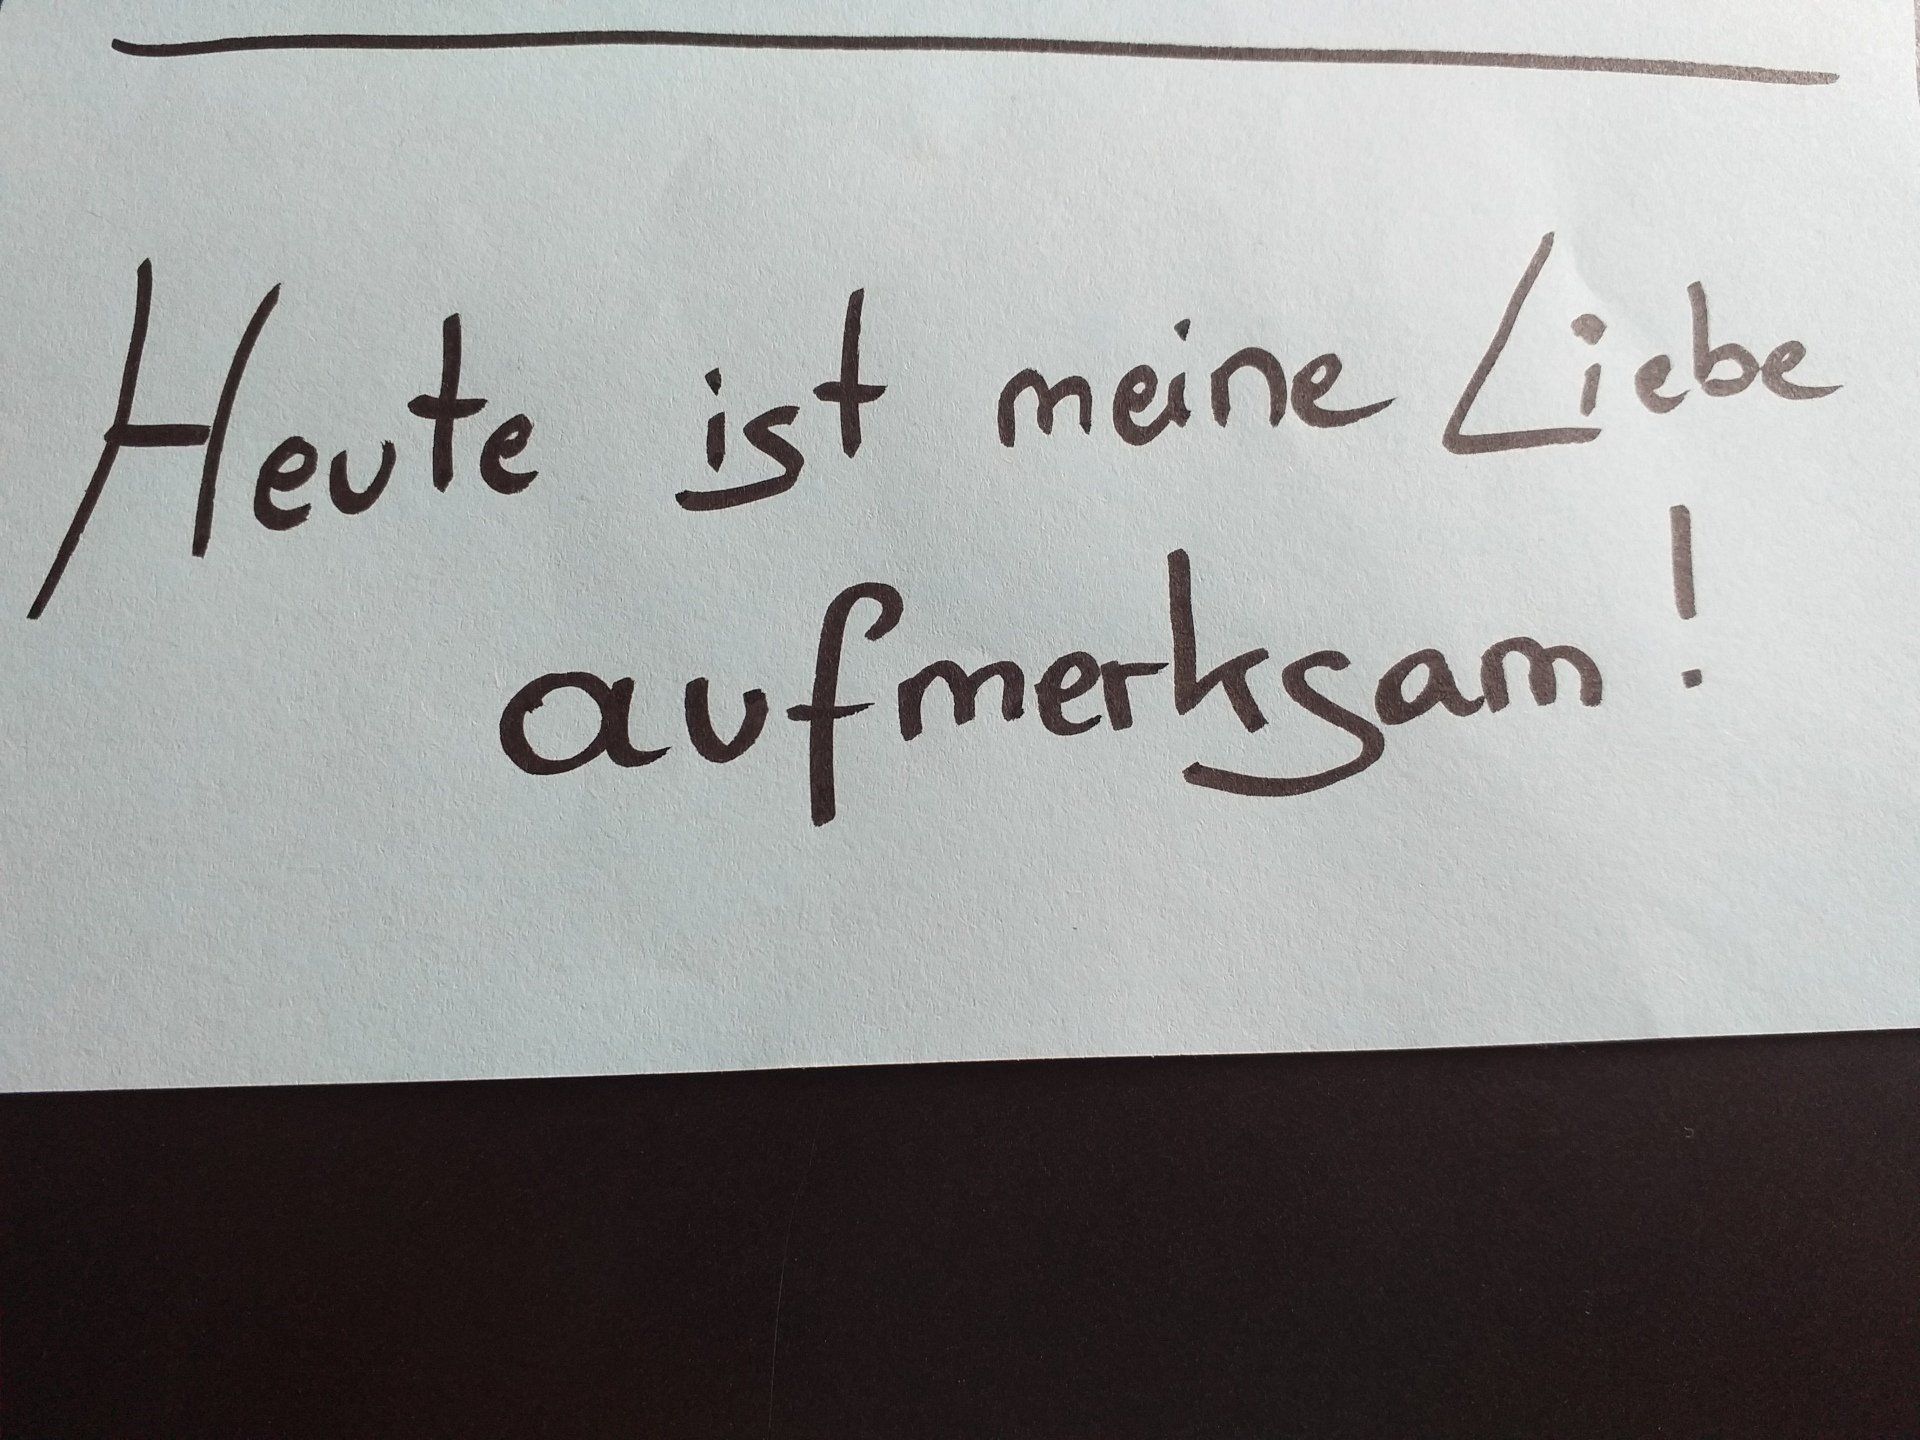 Heute ist meine Liebe
aufmerksam!